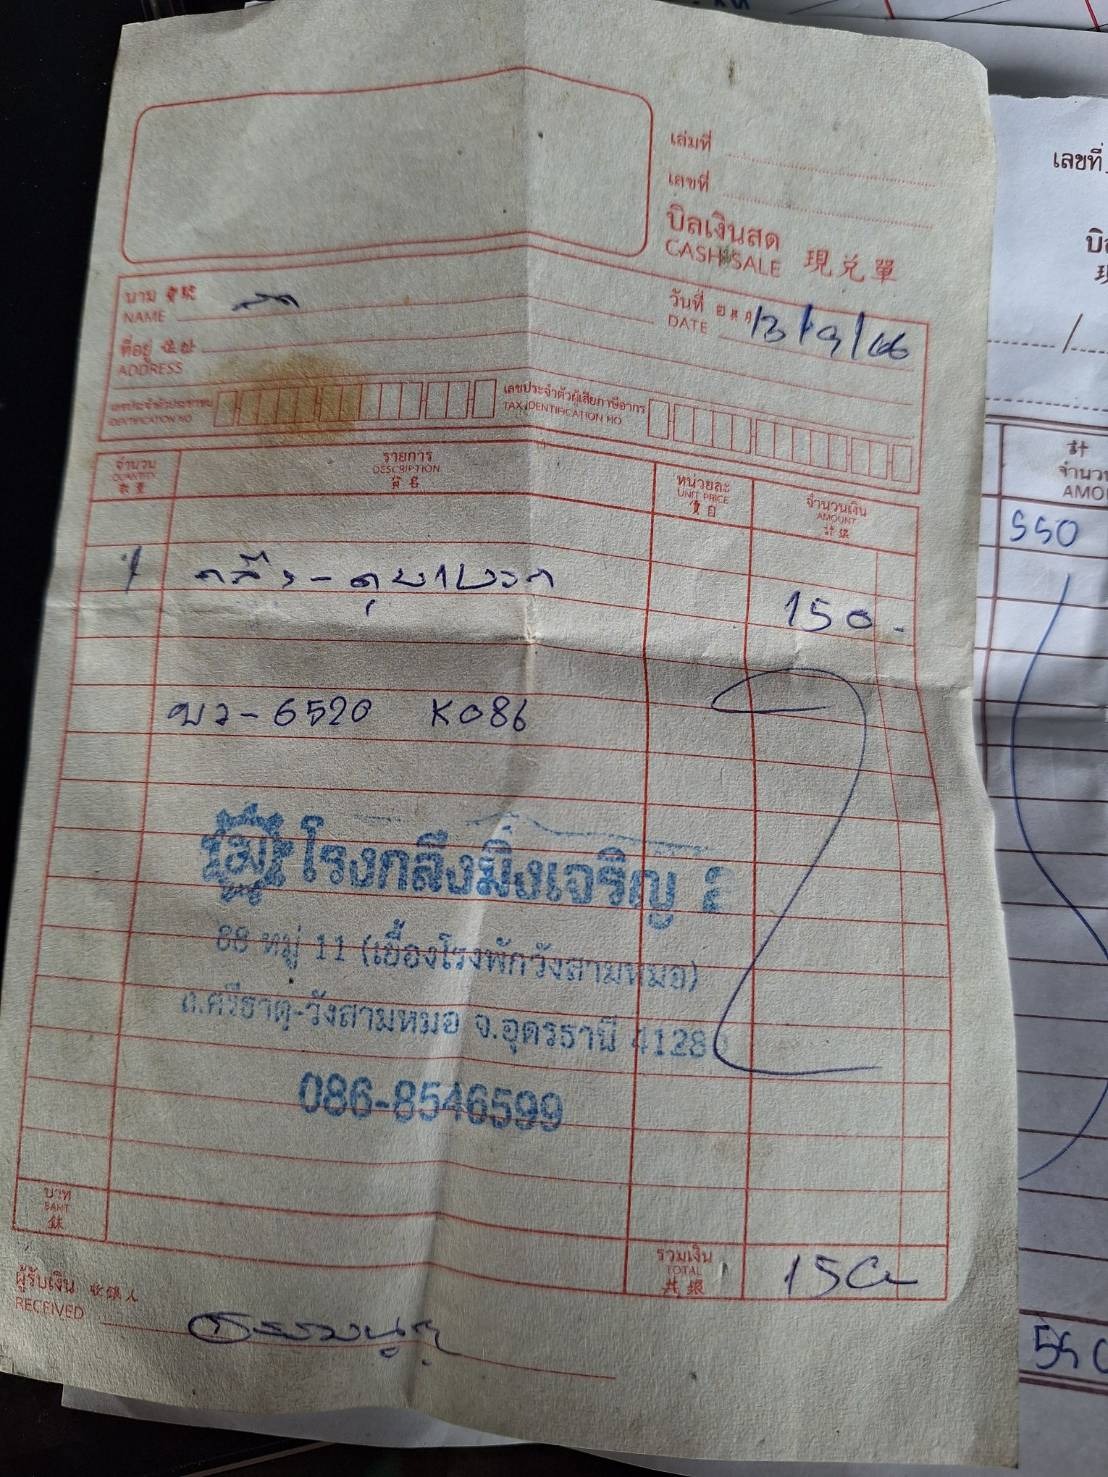 เล่มที่
เลขที่
บิลเงินสด
CASH SALE 現兌單
นาม
NAME
วันที่
DATE 13/9/66
ที่อยู่ 住址
ADDRESS
เลขประจำตัวประชาชน
IDENTIFICATION NO
เลขประจำตัวผู้เสียภาษีอากร
TAX IDENTIFICATION NO
จำนวน
QUANTITY
數量
รายการ
DESCRIPTION
貨名
หน่วยละ
UNIT PRICE
จำนวนเงิน
AMOUNT
計銀
1 กลึง - 150.-
6520 K086
โรงกลึงมิ่งเจริญ 2
88 หมู่ 11 (เยื้องโรงพักวังสามหมอ)
ถ.ศรีธาตุ-วังสามหมอ จ.อุดรธานี 41280
086-8546599
บาท
BAHT
銖
รวมเงิน
TOTAL
共銀
150
ผู้รับเงิน 收銀人
RECEIVED
เลขที่
計
จำนว
AMO
550
550